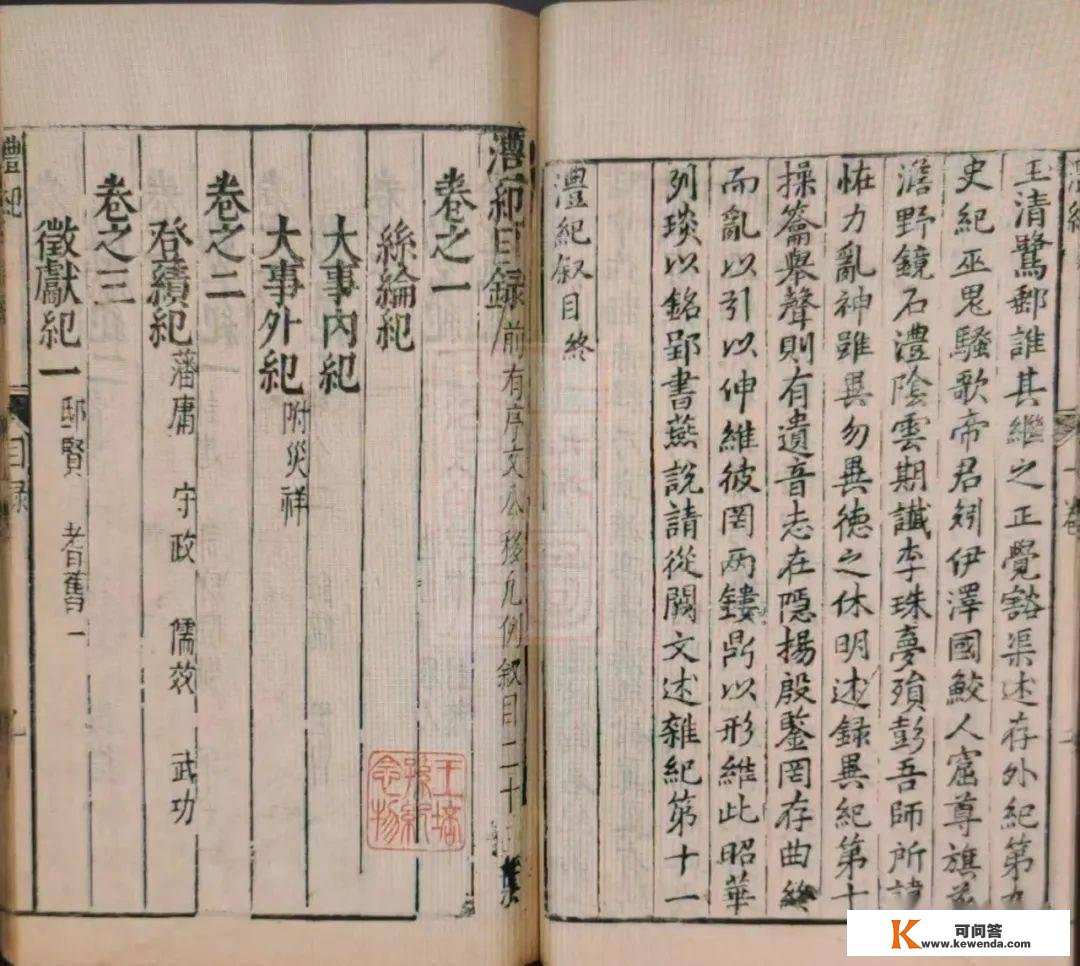 玉清鷺郵誰其繼之正覺豁渠述存外紀第九
史紀巫鬼騷歌帝君矧伊澤國鮫人窟尊旗
澹野鏡石澧陰雲期讖李珠夢殞彭吾師所
恠力亂神雖異勿異德之休明述録異紀第十
操籥舉聲則有遺音志在隱揚殷鑒罔存曲終
而亂以引以伸維彼罔兩鏤鼎以形維此昭華
列琰以銘郢書燕說請從闕文述雜紀第十一
澧紀叙目終
澧紀目録 前有序文公移凡例叙目二十
卷之一
絲綸紀
大事內紀
大事外紀 附災祥
卷之二
登績紀 藩庸 守政 儒效 武功
卷之三
徵獻紀一 邸賢 耆舊一
澧紀
目録
王培孫紀念物
K 可问答
www.kewenda.com